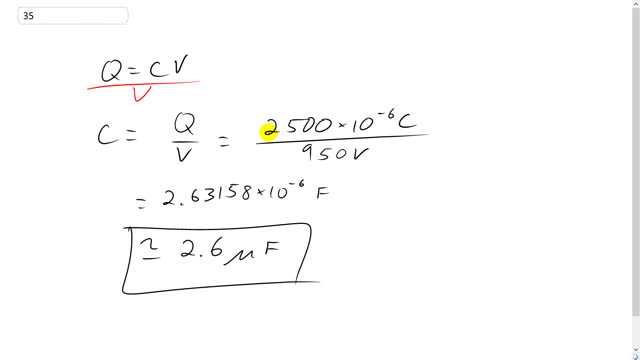 35
Q = CV
V
C = Q/V = 2500 × 10⁻⁶ C / 950V
= 2.63158 × 10⁻⁶ F
≃ 2.6 μF